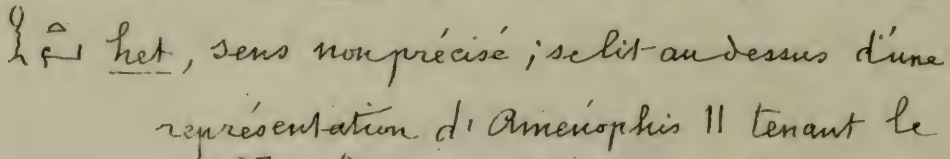 het, sens non précisé ; se lit au dessus d'une
représentation d'Aménophis II tenant le